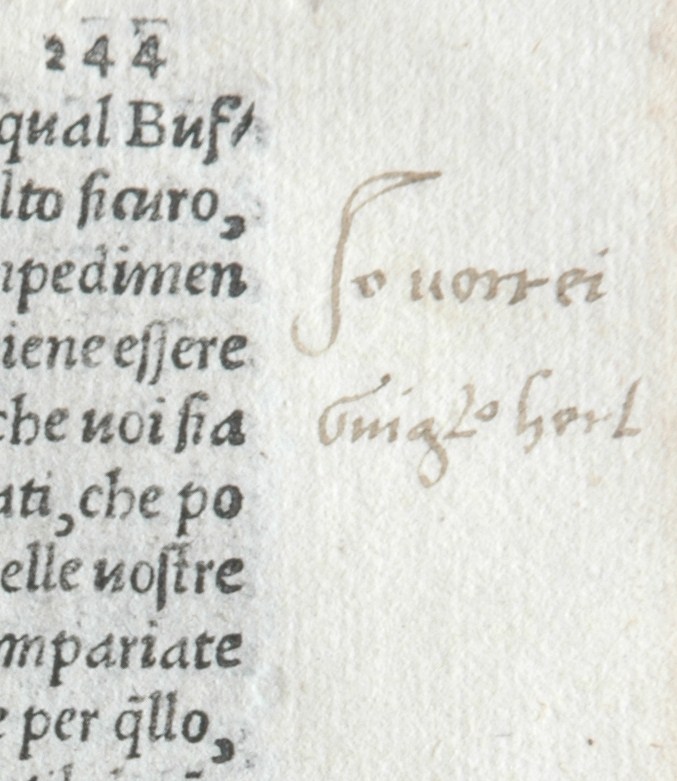 244
qual Buſ
lto ſicuro,
mpedimen
iene eſſere
che uoi ſia
ati, che po
elle uoſtre
mpariate
e per q̄llo,
Io uorrei